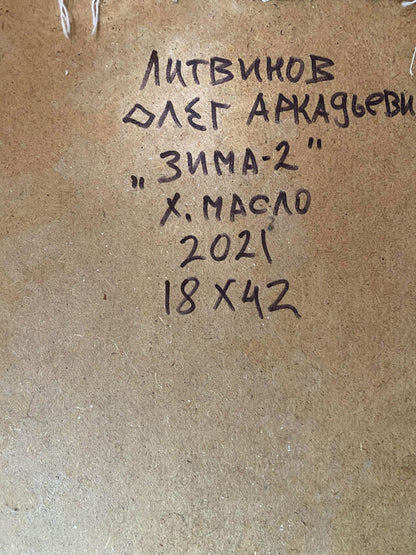 ЛИТВИНОВ
ОЛЕГ АРКАДЬЕВИ
"ЗИМА-2"
Х. МАСЛО
2021
18X42